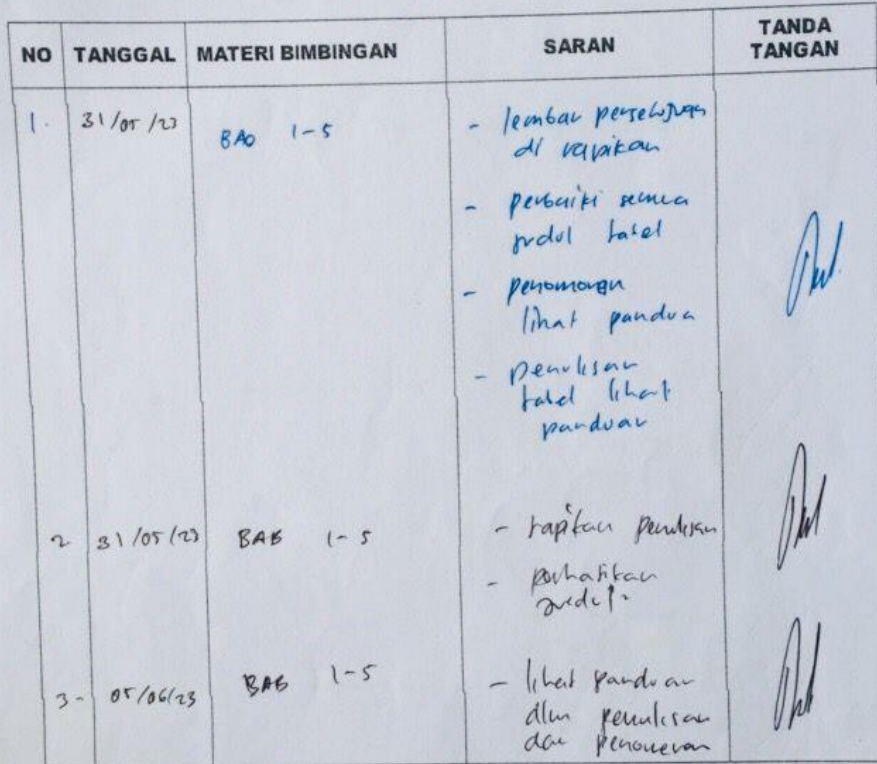 NO TANGGAL MATERI BIMBINGAN SARAN TANDA TANGAN
1. 31/05/23 BAB 1-5 - lembar persetujuan
di rapikan
- perbaiki semua
judul tabel
- penomoran
lihat pandua
- penulisan
tabel lihat
panduan
2 31/05/23 BAB 1-5 - rapikan penulisan
- perhatikan
judul2
3- 05/06/23 BAB 1-5 - lihat panduan
dlm penulisan
dan penomoran